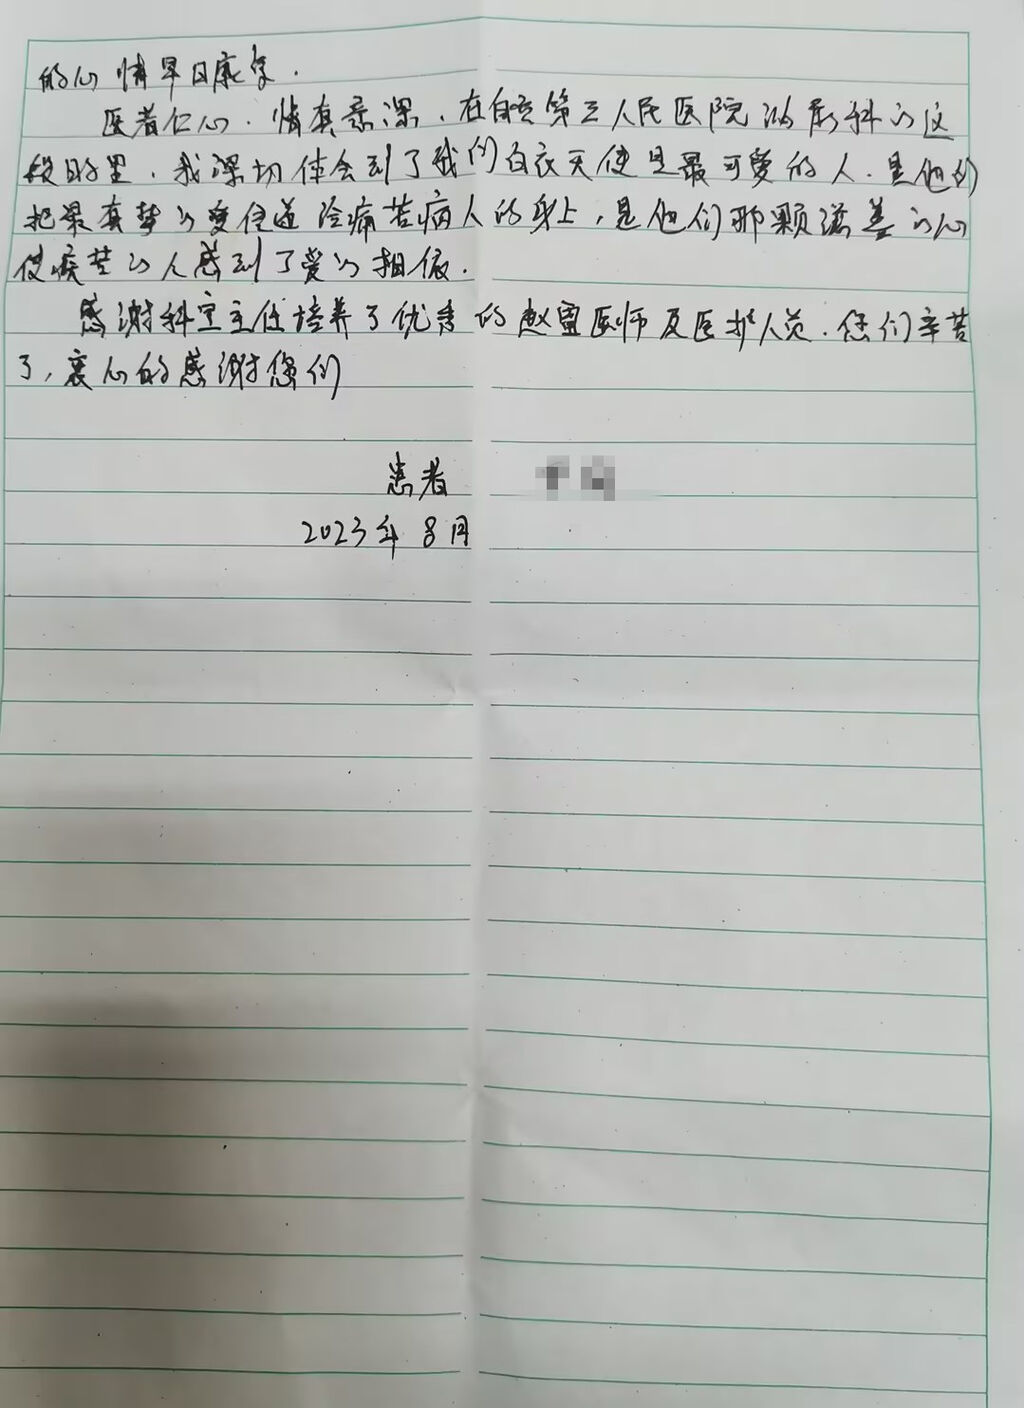 的心情早日康复.
医者仁心.情真意深,在自贡第三人民医院泌尿科的这
段日的里,我深切体会到了我们白衣天使是最可爱的人.是他们
把最真挚的爱传递给痛苦病人的身上,是他们那颗滋善的心
使痰苦的人感到了爱的相依.
感谢科室主任培养了优秀的赵蛮医师及医护人员.您们辛苦
了,衷心的感谢您们
患者
2023年8月